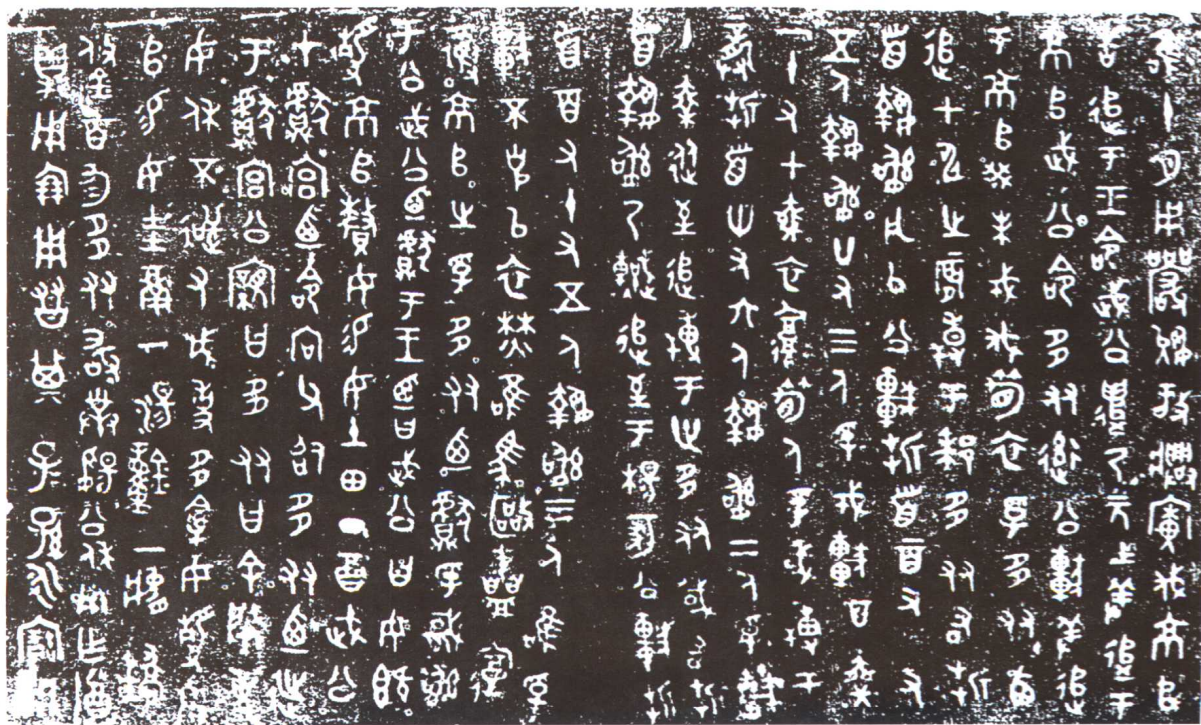 唯十月用嚴狁放興廣伐京𠂤
告追于王命武公遣乃元士羞追于
京𠂤武公命多友率公車羞追
于京𠂤癸未戎伐筍衣孚多友西
追甲申之晨搏于郗多友右折
首執訊凡以公車折首二百又又
五人執訊廿又三人孚戎車百乘
一十又七乘衣復筍人孚或搏于
龏折首卅又六人執訊二人孚車
十乘從至追搏于世多友或右折
首執訊乃追至于楊冢公車折
首百又十又五人執訊三人唯孚
車不克以衣焚唯馬驅盡復
奪京𠂤之孚多友迺獻孚馘訊
于公武公迺獻于王迺曰武公曰女既
靜京𠂤釐女易女土田丁酉武公
才獻宮迺命向父召多友迺徙
于獻宮公親曰多友曰余肈事
女休不逆又成事多禽女靜京
𠂤易女圭瓚一湯鐘一肆鐈鋚
百勻多友敢對揚公休用作尊
鼎用倗用友其子子孫永寶用